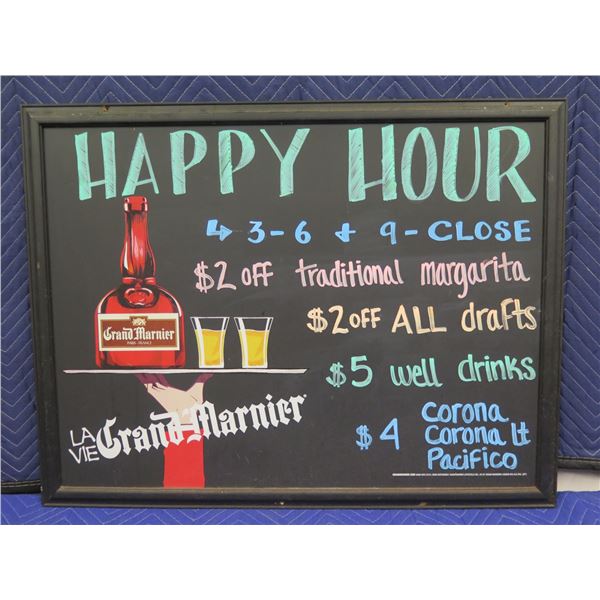 HAPPY HOUR
↳ 3-6 + 9-CLOSE
$2 OFF traditional margarita
$2 OFF ALL drafts
$5 well drinks
$4 Corona
Corona lt
Pacifico
Grand Marnier
PARIS-FRANCE
LA VIE Grand Marnier